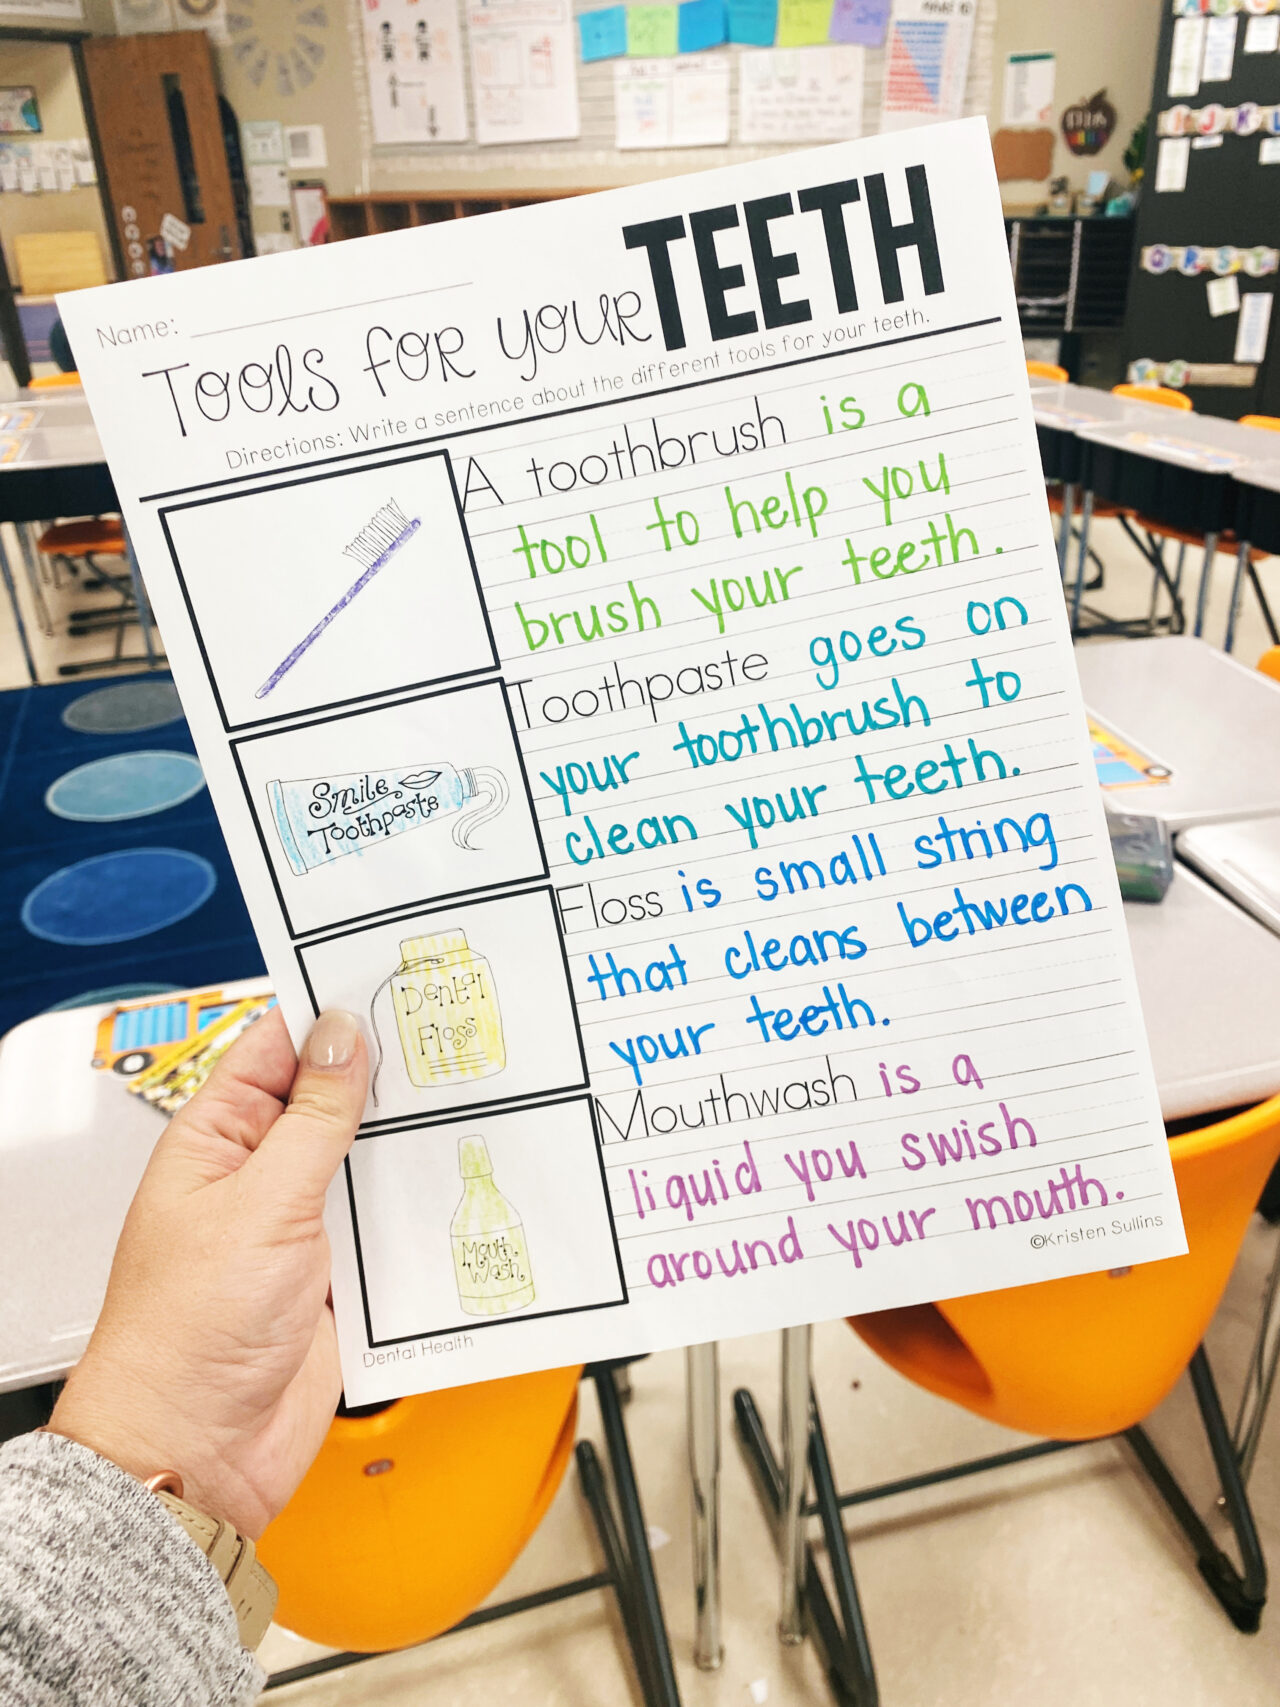 Name:
Tools for your TEETH
Directions: Write a sentence about the different tools for your teeth.
A toothbrush is a
tool to help you
brush your teeth.
Smile
Toothpaste
Toothpaste goes on
your toothbrush to
clean your teeth.
Dental
Floss
Floss is small string
that cleans between
your teeth.
Mouth
Wash
Mouthwash is a
liquid you swish
around your mouth.
©Kristen Sullins
Dental Health